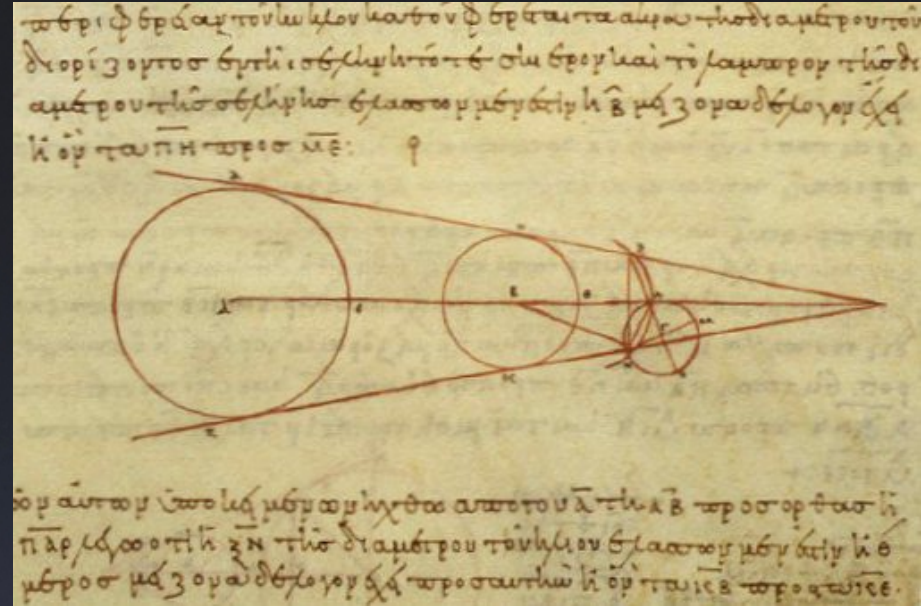 τὸν κύκλον καθ ὃν φέρεται τὰ ἄκρα τῆς διαμέτρου τοῦ
διορίζοντος ἐν τῆι σελήνηι τό τε σκιερὸν καὶ τὸ λαμπρὸν τῆς δι
αμέτρου τῆς σελήνης ἐλάσσων μέν ἐστιν ἢ β̄ μείζονα δὲ λόγον ἔχει
ἢ ὃν τὰ π̄η̄ πρὸς μ̄ε̄:
αὐτῶν ὑποκειμένων ἤχθω ἀπὸ τοῦ Α̅ τῆι Α̅Β̅ πρὸς ὀρθὰς ἡ
Π̅Α̅Ρ̅ λέγω ὅτι ἡ Ξ̅Ν̅ τῆς διαμέτρου τοῦ ἡλίου ἐλάσσων μέν ἐστιν ἢ θ
μέρος μείζονα δὲ λόγον ἔχει πρὸς αὐτὴν ἢ ὃν τὰ πρὸς